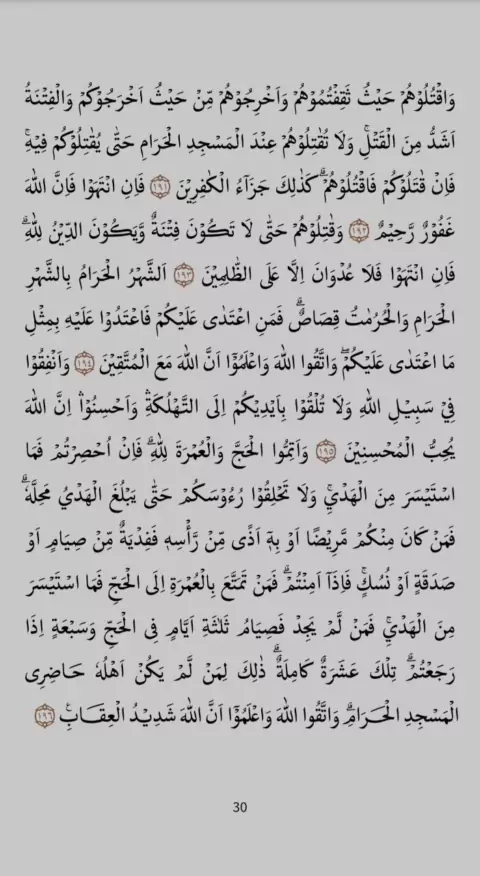 وَاقْتُلُوْهُمْ حَيْثُ ثَقِفْتُمُوْهُمْ وَاَخْرِجُوْهُمْ مِّنْ حَيْثُ اَخْرَجُوْكُمْ وَالْفِتْنَةُ
اَشَدُّ مِنَ الْقَتْلِۚ وَلَا تُقٰتِلُوْهُمْ عِنْدَ الْمَسْجِدِ الْحَرَامِ حَتّٰى يُقٰتِلُوْكُمْ فِيْهِۚ
فَاِنْ قٰتَلُوْكُمْ فَاقْتُلُوْهُمْۗ كَذٰلِكَ جَزَاۤءُ الْكٰفِرِيْنَ ۝١٩١ فَاِنِ انْتَهَوْا فَاِنَّ اللّٰهَ
غَفُوْرٌ رَّحِيْمٌ ۝١٩٢ وَقٰتِلُوْهُمْ حَتّٰى لَا تَكُوْنَ فِتْنَةٌ وَّيَكُوْنَ الدِّيْنُ لِلّٰهِۗ
فَاِنِ انْتَهَوْا فَلَا عُدْوَانَ اِلَّا عَلَى الظّٰلِمِيْنَ ۝١٩٣ اَلشَّهْرُ الْحَرَامُ بِالشَّهْرِ
الْحَرَامِ وَالْحُرُمٰتُ قِصَاصٌۗ فَمَنِ اعْتَدٰى عَلَيْكُمْ فَاعْتَدُوْا عَلَيْهِ بِمِثْلِ
مَا اعْتَدٰى عَلَيْكُمْۖ وَاتَّقُوا اللّٰهَ وَاعْلَمُوْٓا اَنَّ اللّٰهَ مَعَ الْمُتَّقِيْنَ ۝١٩٤ وَاَنْفِقُوْا
فِيْ سَبِيْلِ اللّٰهِ وَلَا تُلْقُوْا بِاَيْدِيْكُمْ اِلَى التَّهْلُكَةِۛ وَاَحْسِنُوْاۛ اِنَّ اللّٰهَ
يُحِبُّ الْمُحْسِنِيْنَ ۝١٩٥ وَاَتِمُّوا الْحَجَّ وَالْعُمْرَةَ لِلّٰهِۗ فَاِنْ اُحْصِرْتُمْ فَمَا
اسْتَيْسَرَ مِنَ الْهَدْيِۚ وَلَا تَحْلِقُوْا رُءُوْسَكُمْ حَتّٰى يَبْلُغَ الْهَدْيُ مَحِلَّهٗۗ
فَمَنْ كَانَ مِنْكُمْ مَّرِيْضًا اَوْ بِهٖٓ اَذًى مِّنْ رَّأْسِهٖ فَفِدْيَةٌ مِّنْ صِيَامٍ اَوْ
صَدَقَةٍ اَوْ نُسُكٍۚ فَاِذَآ اَمِنْتُمْۗ فَمَنْ تَمَتَّعَ بِالْعُمْرَةِ اِلَى الْحَجِّ فَمَا اسْتَيْسَرَ
مِنَ الْهَدْيِۚ فَمَنْ لَّمْ يَجِدْ فَصِيَامُ ثَلٰثَةِ اَيَّامٍ فِى الْحَجِّ وَسَبْعَةٍ اِذَا
رَجَعْتُمْۗ تِلْكَ عَشَرَةٌ كَامِلَةٌۗ ذٰلِكَ لِمَنْ لَّمْ يَكُنْ اَهْلُهٗ حَاضِرِى
الْمَسْجِدِ الْحَرَامِۗ وَاتَّقُوا اللّٰهَ وَاعْلَمُوْٓا اَنَّ اللّٰهَ شَدِيْدُ الْعِقَابِ ۝١٩٦
30